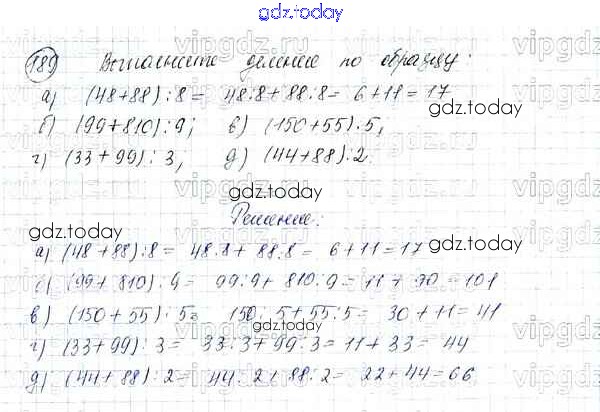 gdz.today
189 Выполните деление по образцу:
а) (48+88):8 = 48:8+88:8 = 6+11 = 17
gdz.today
б) (99+810):9; в) (150+55):5,
г) (33+99):3, д) (44+88):2.
gdz.today
Решение:
а) (48+88):8 = 48:8+88:8 = 6+11 = 17
gdz.today
б) (99+810):9 = 99:9+810:9 = 11+90 = 101
в) (150+55):5 = 150:5+55:5 = 30+11 = 41
gdz.today
г) (33+99):3 = 33:3+99:3 = 11+33 = 44
д) (44+88):2 = 44:2+88:2 = 22+44 = 66
gdz.today